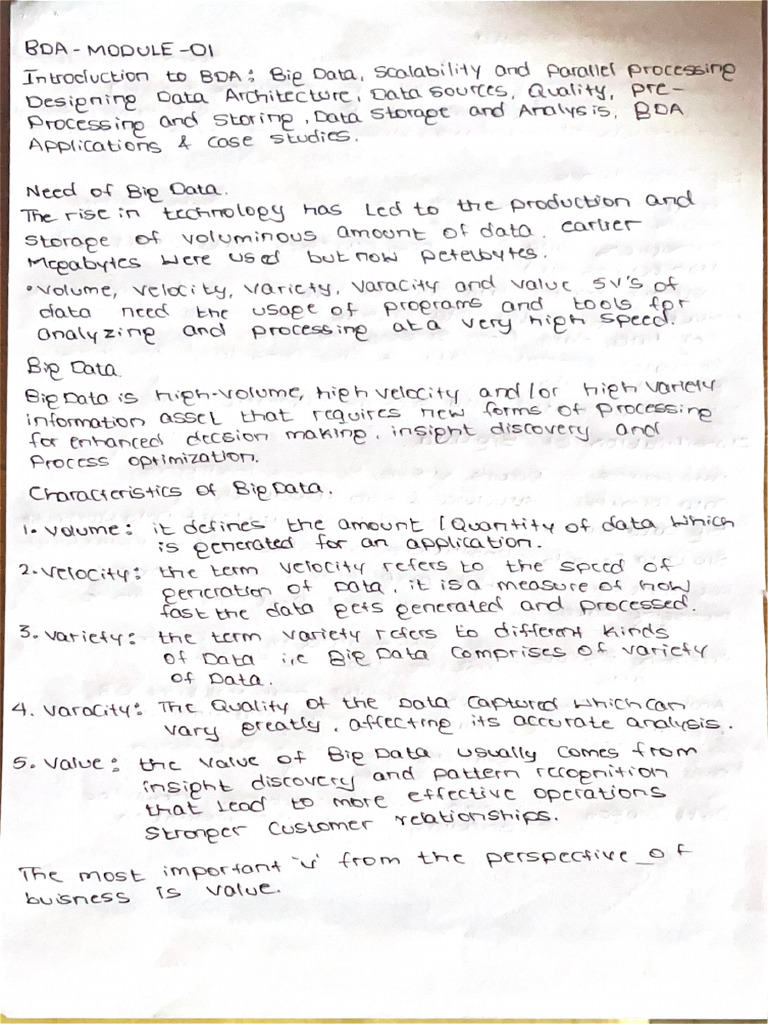 BDA - MODULE - 01
Introduction to BDA: Big Data, Scalability and Parallel Processing
Designing Data Architecture, Data Sources, Quality, Pre-
Processing and Storing, Data Storage and Analysis, BDA
Applications & Case Studies.
Need of Big Data.
The rise in technology has Led to the production and
storage of voluminous amount of data. earlier
Megabytes were used but now petelbytes.
• Volume, Velocity, Variety, Varacity and value 5V's of
data need the usage of programs and tools for
analyzing and processing at a very high speed.
Big Data
Big Data is high-volume, high velocity and/or high variety
information asset that requires new forms of processing
for enhanced decsion making, insight discovery and
Process optimization.
Characteristics of Big Data.
1. Volume: it defines the amount / Quantity of data which
is generated for an application.
2. Velocity: the term velocity refers to the speed of
genration of Data, it is a measure of how
fast the data gets generated and processed.
3. Variety: the term variety refers to different kinds
of Data i.e Big Data comprises of variety
of Data.
4. Varacity: The Quality of the Data Captured which can
vary greatly, affecting its accurate analysis.
5. Value: the value of Big Data usually comes from
insight discovery and pattern recognition
that Lead to more effective operations
Stronger Customer relationships.
The most important 'v' from the perspective of
buisness is value.